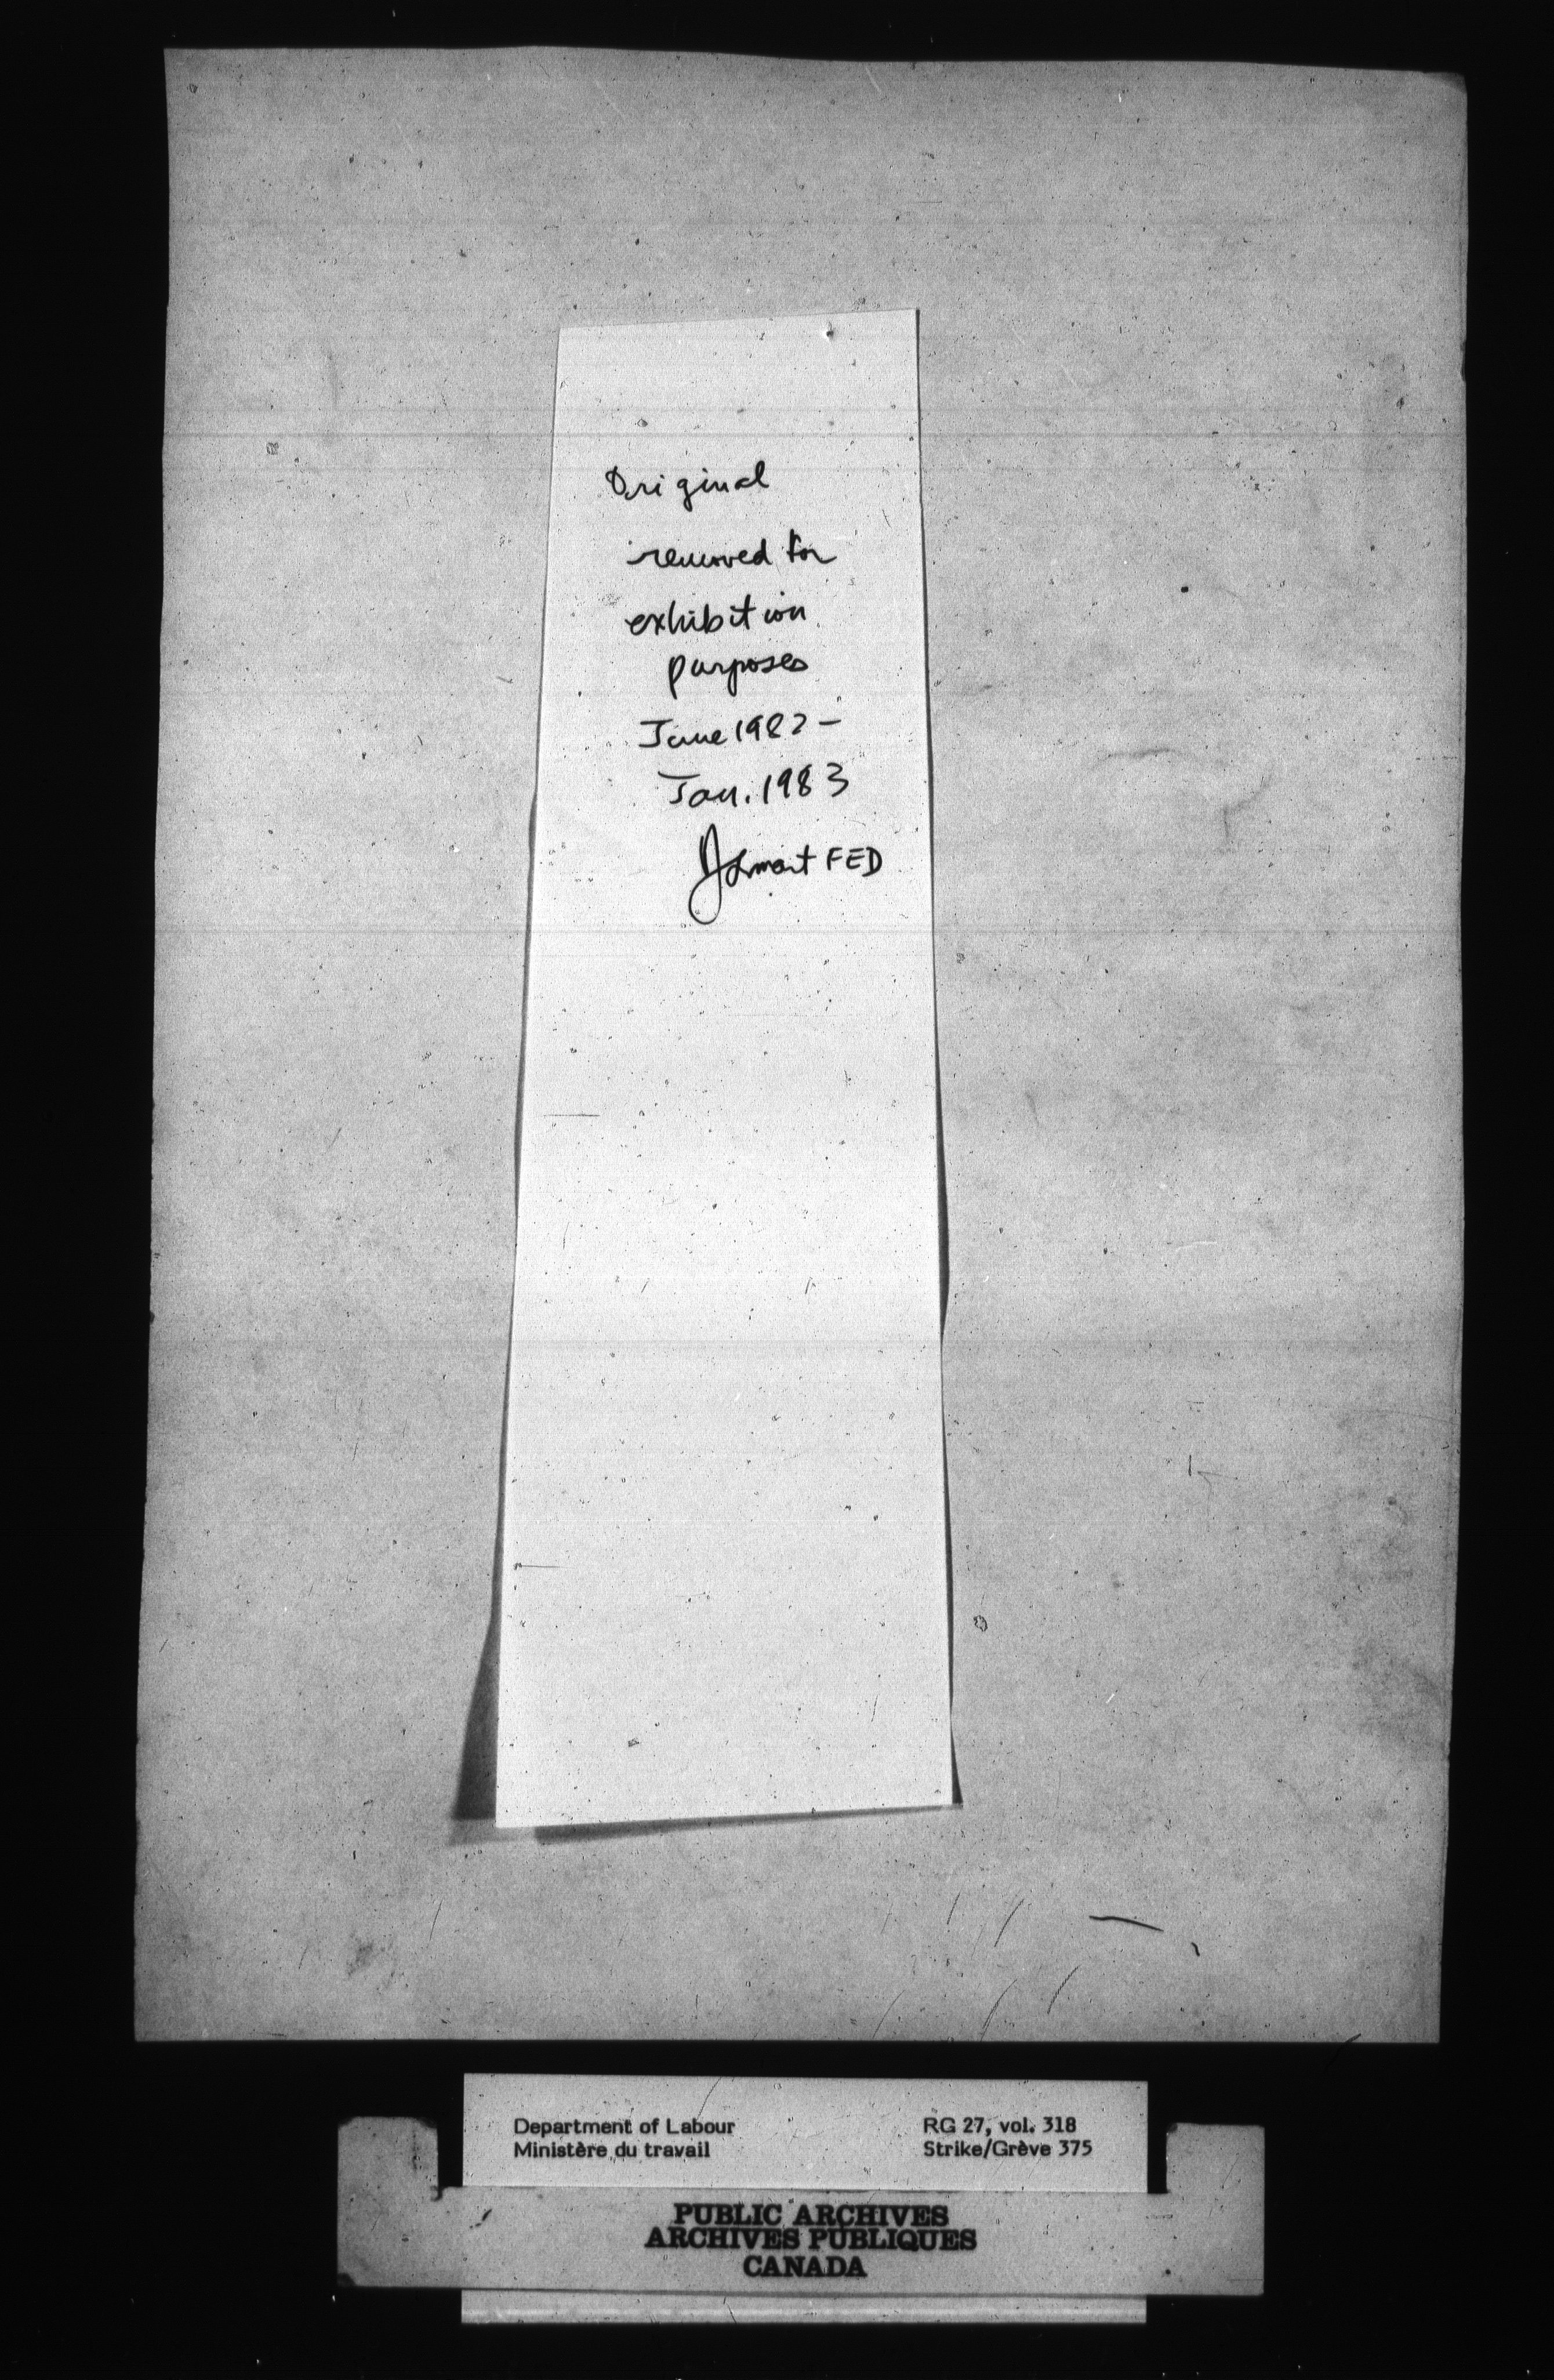 Original
removed for
exhibition
purposes
June 1982 –
Jan. 1983
FED
Department of Labour
Ministère du travail
RG 27, vol. 318
Strike/Grève 375
PUBLIC ARCHIVES
ARCHIVES PUBLIQUES
CANADA